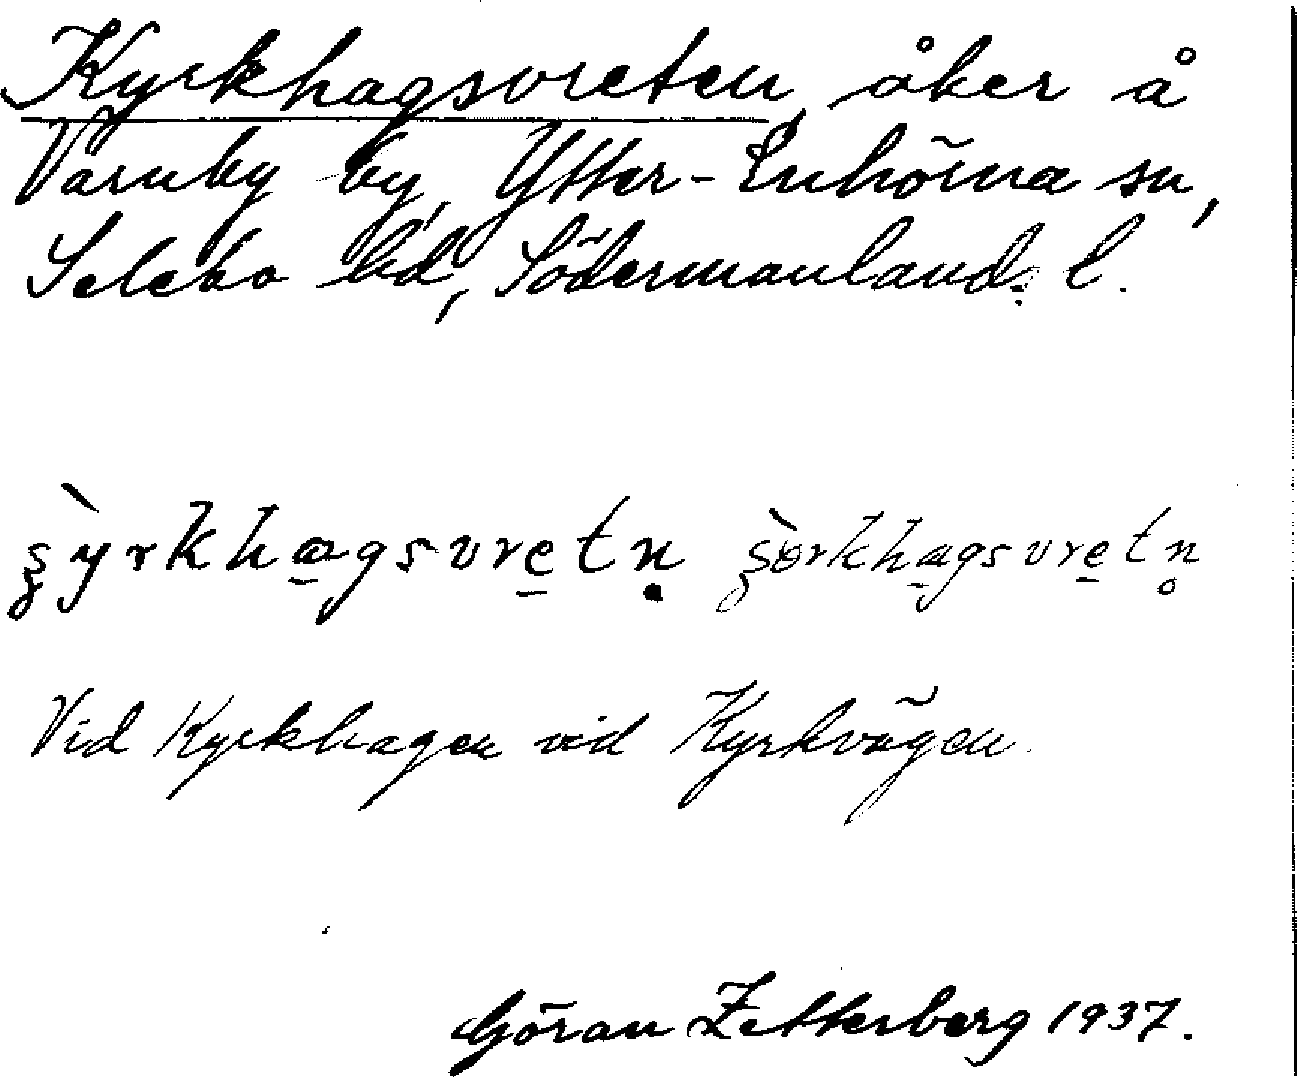 Kyrkhagsvreten, åker å
Varnby by, Ytter-Enhörna sn,
Selebo hd, Södermanlands l.
ʂ̀yrkhagsvretn̥ ʂ̀ɵrkhagsvretn̥
Vid Kyrkhagen vid Kyrkvägen.
Göran Zetterberg 1937.